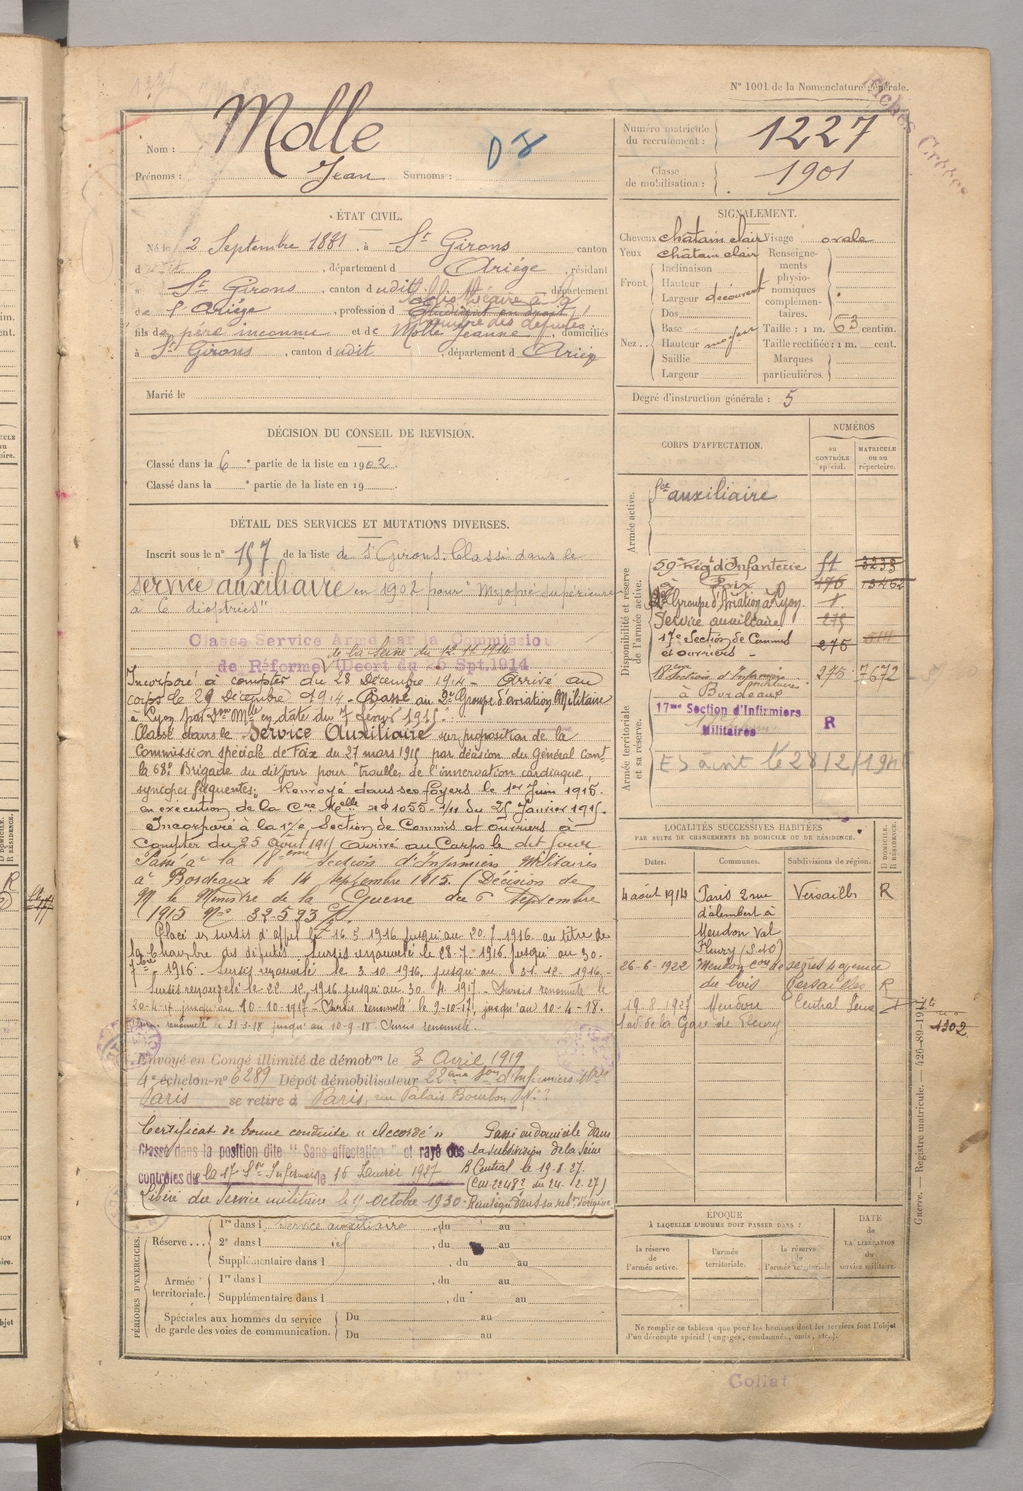 N° 1001 de la Nomenclature générale.
Nom : Molle
Prénoms : Jean Surnoms :
D 8
Numéro matricule du recrutement : 1227
Classe de mobilisation : 1901
ÉTAT CIVIL.
Né le 2 Septembre 1881, à St Girons canton
d , département d Ariége , résidant
à St Girons , canton dudit , département
de l'Ariége , profession d Bibliothécaire à la
Etudiant en droit
chambre des députés
fils de père inconnu et de Molle Jeanne , domiciliés
à St Girons , canton dudit , département d Ariége
Marié le
SIGNALEMENT.
Cheveux chatain clair Visage ovale
Yeux chatain clair Renseignements physionomiques complémentaires.
Front. Inclinaison
Hauteur
Largeur découvert
Nez. Dos
Base
Hauteur moyen
Saillie
Largeur
Taille : 1 m. 63 centim.
Taille rectifiée : 1 m. cent.
Marques particulières.
Degré d'instruction générale : 5
DÉCISION DU CONSEIL DE REVISION.
Classé dans la 6e partie de la liste en 1902.
Classé dans la e partie de la liste en 19
DÉTAIL DES SERVICES ET MUTATIONS DIVERSES.
Inscrit sous le n° 157 de la liste de St Girons. Classé dans le
service auxiliaire en 1902 pour "Myopie supérieure
à 6 dioptries"
Classé Service Armé par la Commission
de la Seine du 12.11.1914
de Réforme (Décret du 26 Spt. 1914
Incorporé à compter du 28 Décembre 1914. Arrivé au
corps le 29 Décembre 1914. Passé au 2e Groupe d'aviation Militaire
à Lyon par Don Mlle en date du 7 Févr 1915.
Classé dans le Service Auxiliaire sur proposition de la
Commission spéciale de Foix du 27 mars 1915 par décision du Général Comt
la 68e Brigade du dit jour pour "troubles de l'innervation cardiaque,
syncopes fréquentes. Renvoyé dans ses foyers le 1er Juin 1915.
en exécution de la Cre Melle n° 1055 du 25 janvier 1915.
Incorporé à la 17e Section de Commis et Ouvriers à
compter du 25 Août 1915 arrivé au Corps le dit jour
Passé à la 18ème Section d'Infirmiers Militaires
à Bordeaux le 14 septembre 1915. (Décision de
M le Ministre de la Guerre du 6 Septembre
1915 No 32.593
Placé en sursis d'appel le 16.3.1916 jusqu'au 20.7.1916 au titre de
la Chambre des députés. Sursis renouvelé le 28-7-1916 jusqu'au 30.
1916. Sursis renouvelé le 3.10.1916 jusqu'au 31.12.1916.
Sursis renouvelé le 22.12.1916 jusqu'au 30.4.1917. Sursis renouvelé le
20-4-17 jusqu'au 10-10-1917. Sursis renouvelé le 9-10-17 jusqu'au 10-4-18.
renouvelé le 31-3-18 jusqu'au 10-9-18 Sursis renouvelé.
Envoyé en Congé illimité de démobon le 3 Avril 1919
4e échelon n° 6289 Dépôt démobilisateur 22ème Son d'Infirmiers Mres
Paris se retire à Paris, rue Palais Bourbon
Certificat de bonne conduite "Accordé"
Classé dans la position dite "Sans affectation" et rayé des
contrôles de la 17 Son Infirmiers le 16 Février 1927
Libéré du service militaire le 11 octobre 1930
Passé en domicile dans
la subdivision de la Seine
B Central le 19.8.27.
Réintégré dans sa subon d'origine
CORPS D'AFFECTATION.
NUMÉROS
AU CONTRÔLE spécial.
MATRICULE OU AU répertoire.
Armée active.
Sce auxiliaire
Disponibilité et réserve de l'armée active.
59e Régt d'Infanterie
à Foix
2e Groupe d'Aviation à Lyon.
Service auxiliaire
17e Section de Commis
et ouvriers
18ème Section d'Infirmiers
militaires 275 7672
à Bordeaux
Armée territoriale et sa réserve.
17me Section d'Infirmiers
Militaires R
LOCALITÉS SUCCESSIVES HABITÉES
PAR SUITE DE CHANGEMENTS DE DOMICILE OU DE RÉSIDENCE.
Dates. Communes. Subdivisions de région. D DOMICILE. R RÉSIDENCE.
4 août 1914 Paris 2 rue Versailles R
d'alembert à
Meudon Val
Fleury (S&O)
26-6-1922 Meudon
du bois Versailles R
19.8.1927 Meudon Central Seine D
1 av. de la Gare de Fleury
1302
PÉRIODES D'EXERCICES.
Réserve ... 1re dans l service auxiliaire , du au
2e dans l id , du au
Supplémentaire dans l , du au
Armée territoriale. 1re dans l , du au
Supplémentaire dans l , du au
Spéciales aux hommes du service de garde des voies de communication. Du au
Du au
ÉPOQUE
À LAQUELLE L'HOMME DOIT PASSER DANS :
la réserve de l'armée active.
l'armée territoriale.
la réserve de l'armée territoriale
DATE DE LA LIBÉRATION du service militaire.
Ne remplir ce tableau que pour les hommes dont les services font l'objet
d'un décompte spécial (engagés, condamnés, omis, etc.).
Guerre. — Registre matricule. — 426-89-1914